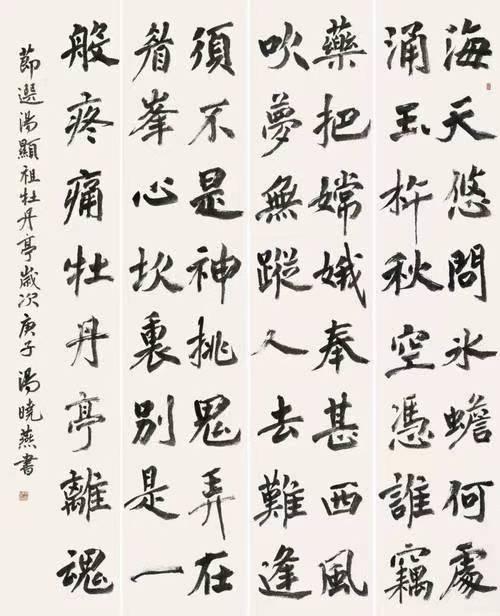 海天悠問冰蟾何處
涌玉杵秋空憑誰竊
藥把嫦娥奉甚西風
吹夢無蹤人去難逢
須不是神挑鬼弄在
眉峯心坎裏別是一
般疼痛牡丹亭離魂
節選湯顯祖牡丹亭歲次庚子湯曉燕書